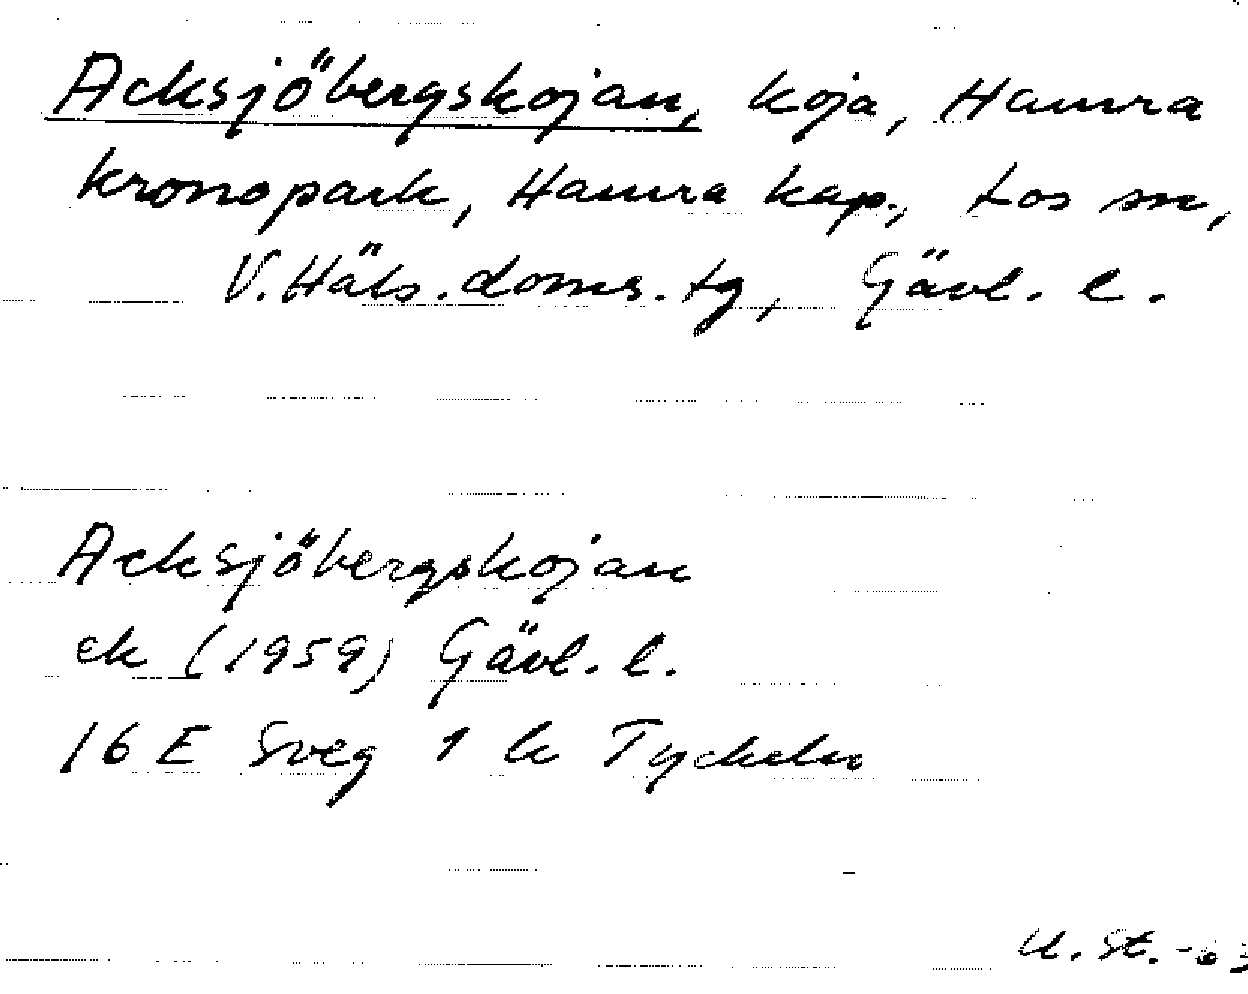 Acksjöbergskojan, koja, Hamra
kronopark, Hamra kap., Los sn,
V. Häls. doms. tg, Gävl. l.
Acksjöbergskojan
ek (1959) Gävl. l.
16 E Sveg 1 h Tyckeln
U. St. -63